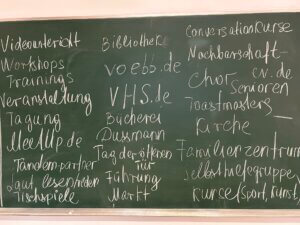 Videounterricht
Workshops
Trainings
Veranstaltung
Tagung
MeetUp.de
Tandem-partner
Laut lesen/reden
Tischspiele
Bibliothek
voebb.de
VHS.de
Bücherei
Dussmann
Tag der offenen
Tür
Führung
Markt
Conversation Kurse
Nachbarschaft-
Chor
cv.de
Senioren
Toastmasters
Kirche
Familienzentrum
Selbsthilfegruppe
Kurse (Sport, Kunst,